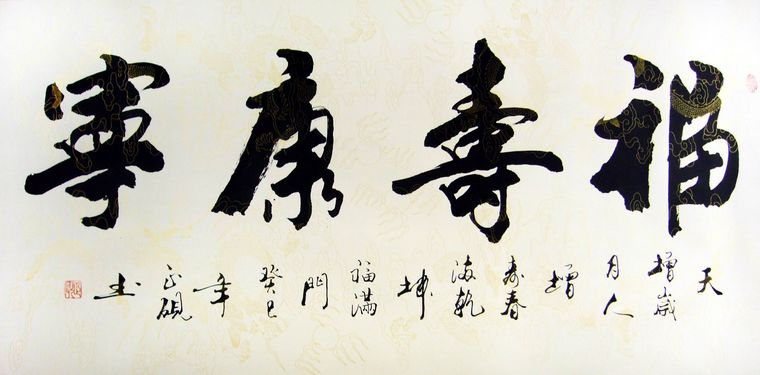 福壽康寧
天增歲月人增壽春滿乾坤福滿門
癸巳年正硯書